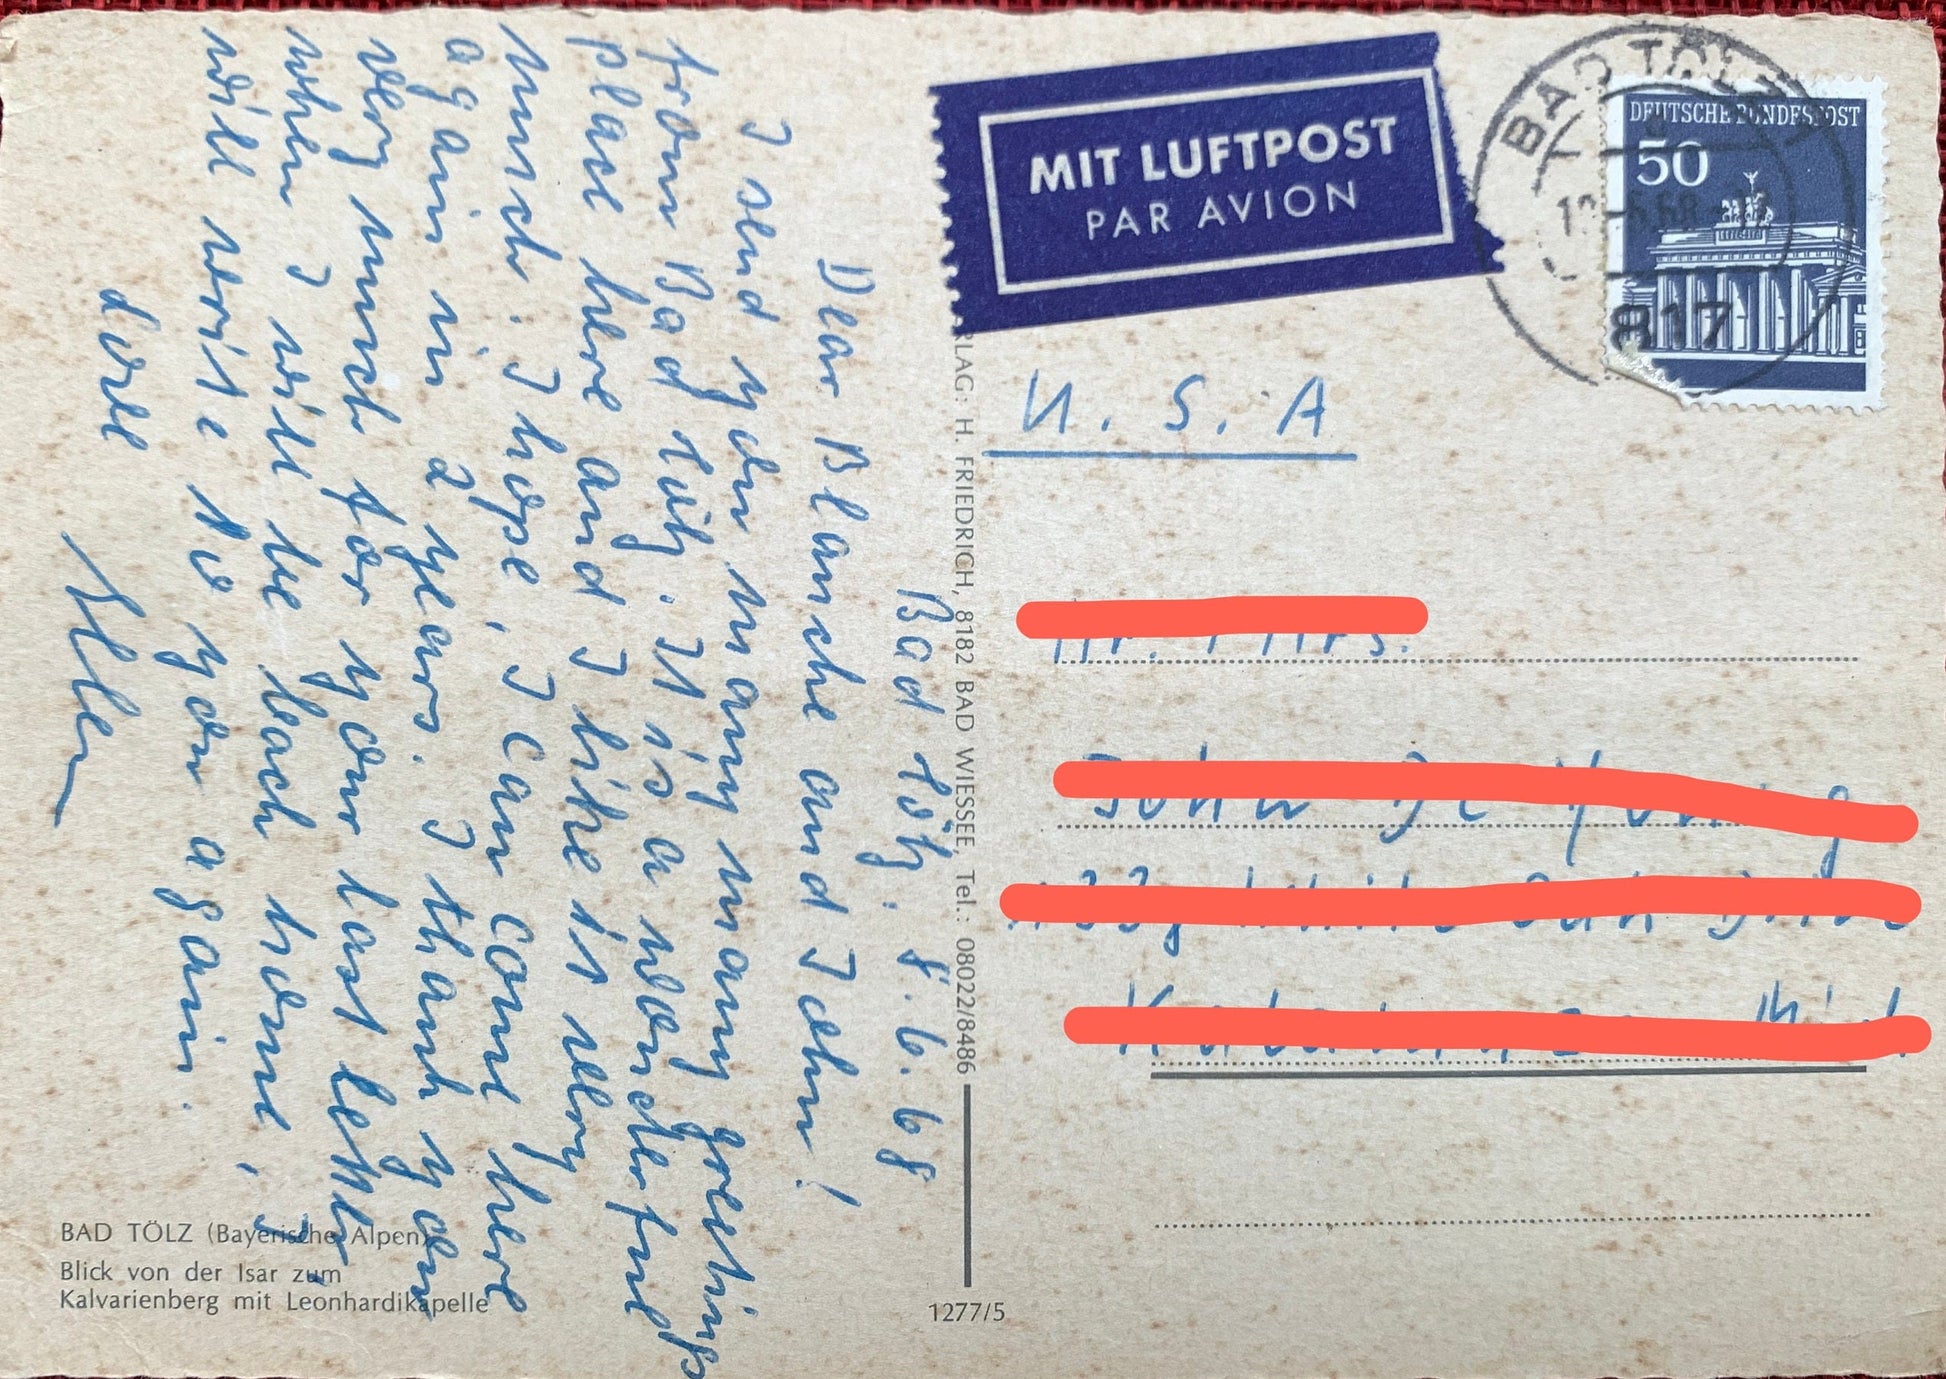 Bad Tölz. 8.6.68
Dear Blanche and John!
I send you many many greetings
from Bad Tölz. It is a wonderful
place here and I like it very
much. I hope, I can come here
again in 2 years. I thank you
very much for your last letter
when I will be back home, I
will write to you again.
Love
BAD TÖLZ (Bayerische Alpen)
Blick von der Isar zum
Kalvarienberg mit Leonhardikapelle
RLAG: H. FRIEDRICH, 8182 BAD WIESSEE, Tel.: 08022/8486
1277/5
MIT LUFTPOST
PAR AVION
BAD TÖLZ
817
DEUTSCHE BUNDESPOST
50
U.S.A